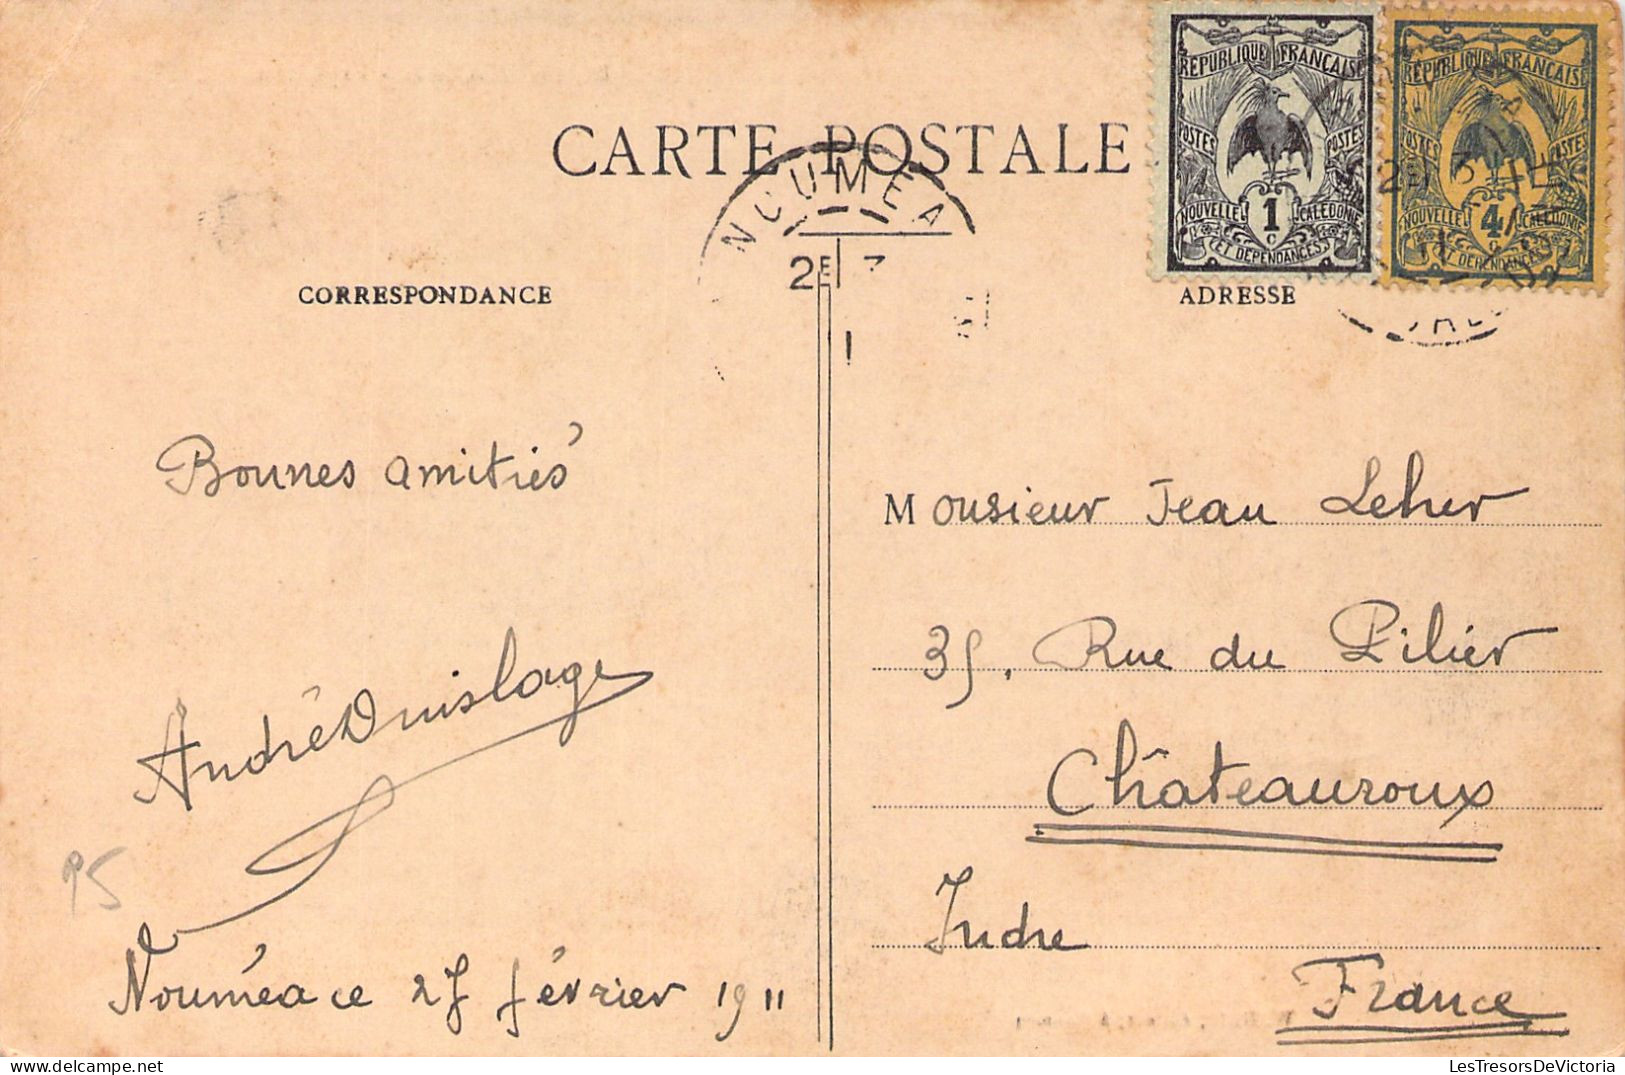 CARTE POSTALE
REPUBLIQUE FRANÇAISE
POSTES POSTES
NOUVELLE CALEDONIE
1 c
ET DEPENDANCES
REPUBLIQUE FRANÇAISE
POSTES POSTES
NOUVELLE CALEDONIE
4 c
ET DEPENDANCES
NOUMEA
2E
CORRESPONDANCE
ADRESSE
Bonnes amitiés
André
Nouméa ce 27 février 1911
95
Monsieur Jean Leher
35, Rue du Pilier
Châteauroux
Indre
France
LesTresorsDeVictoria